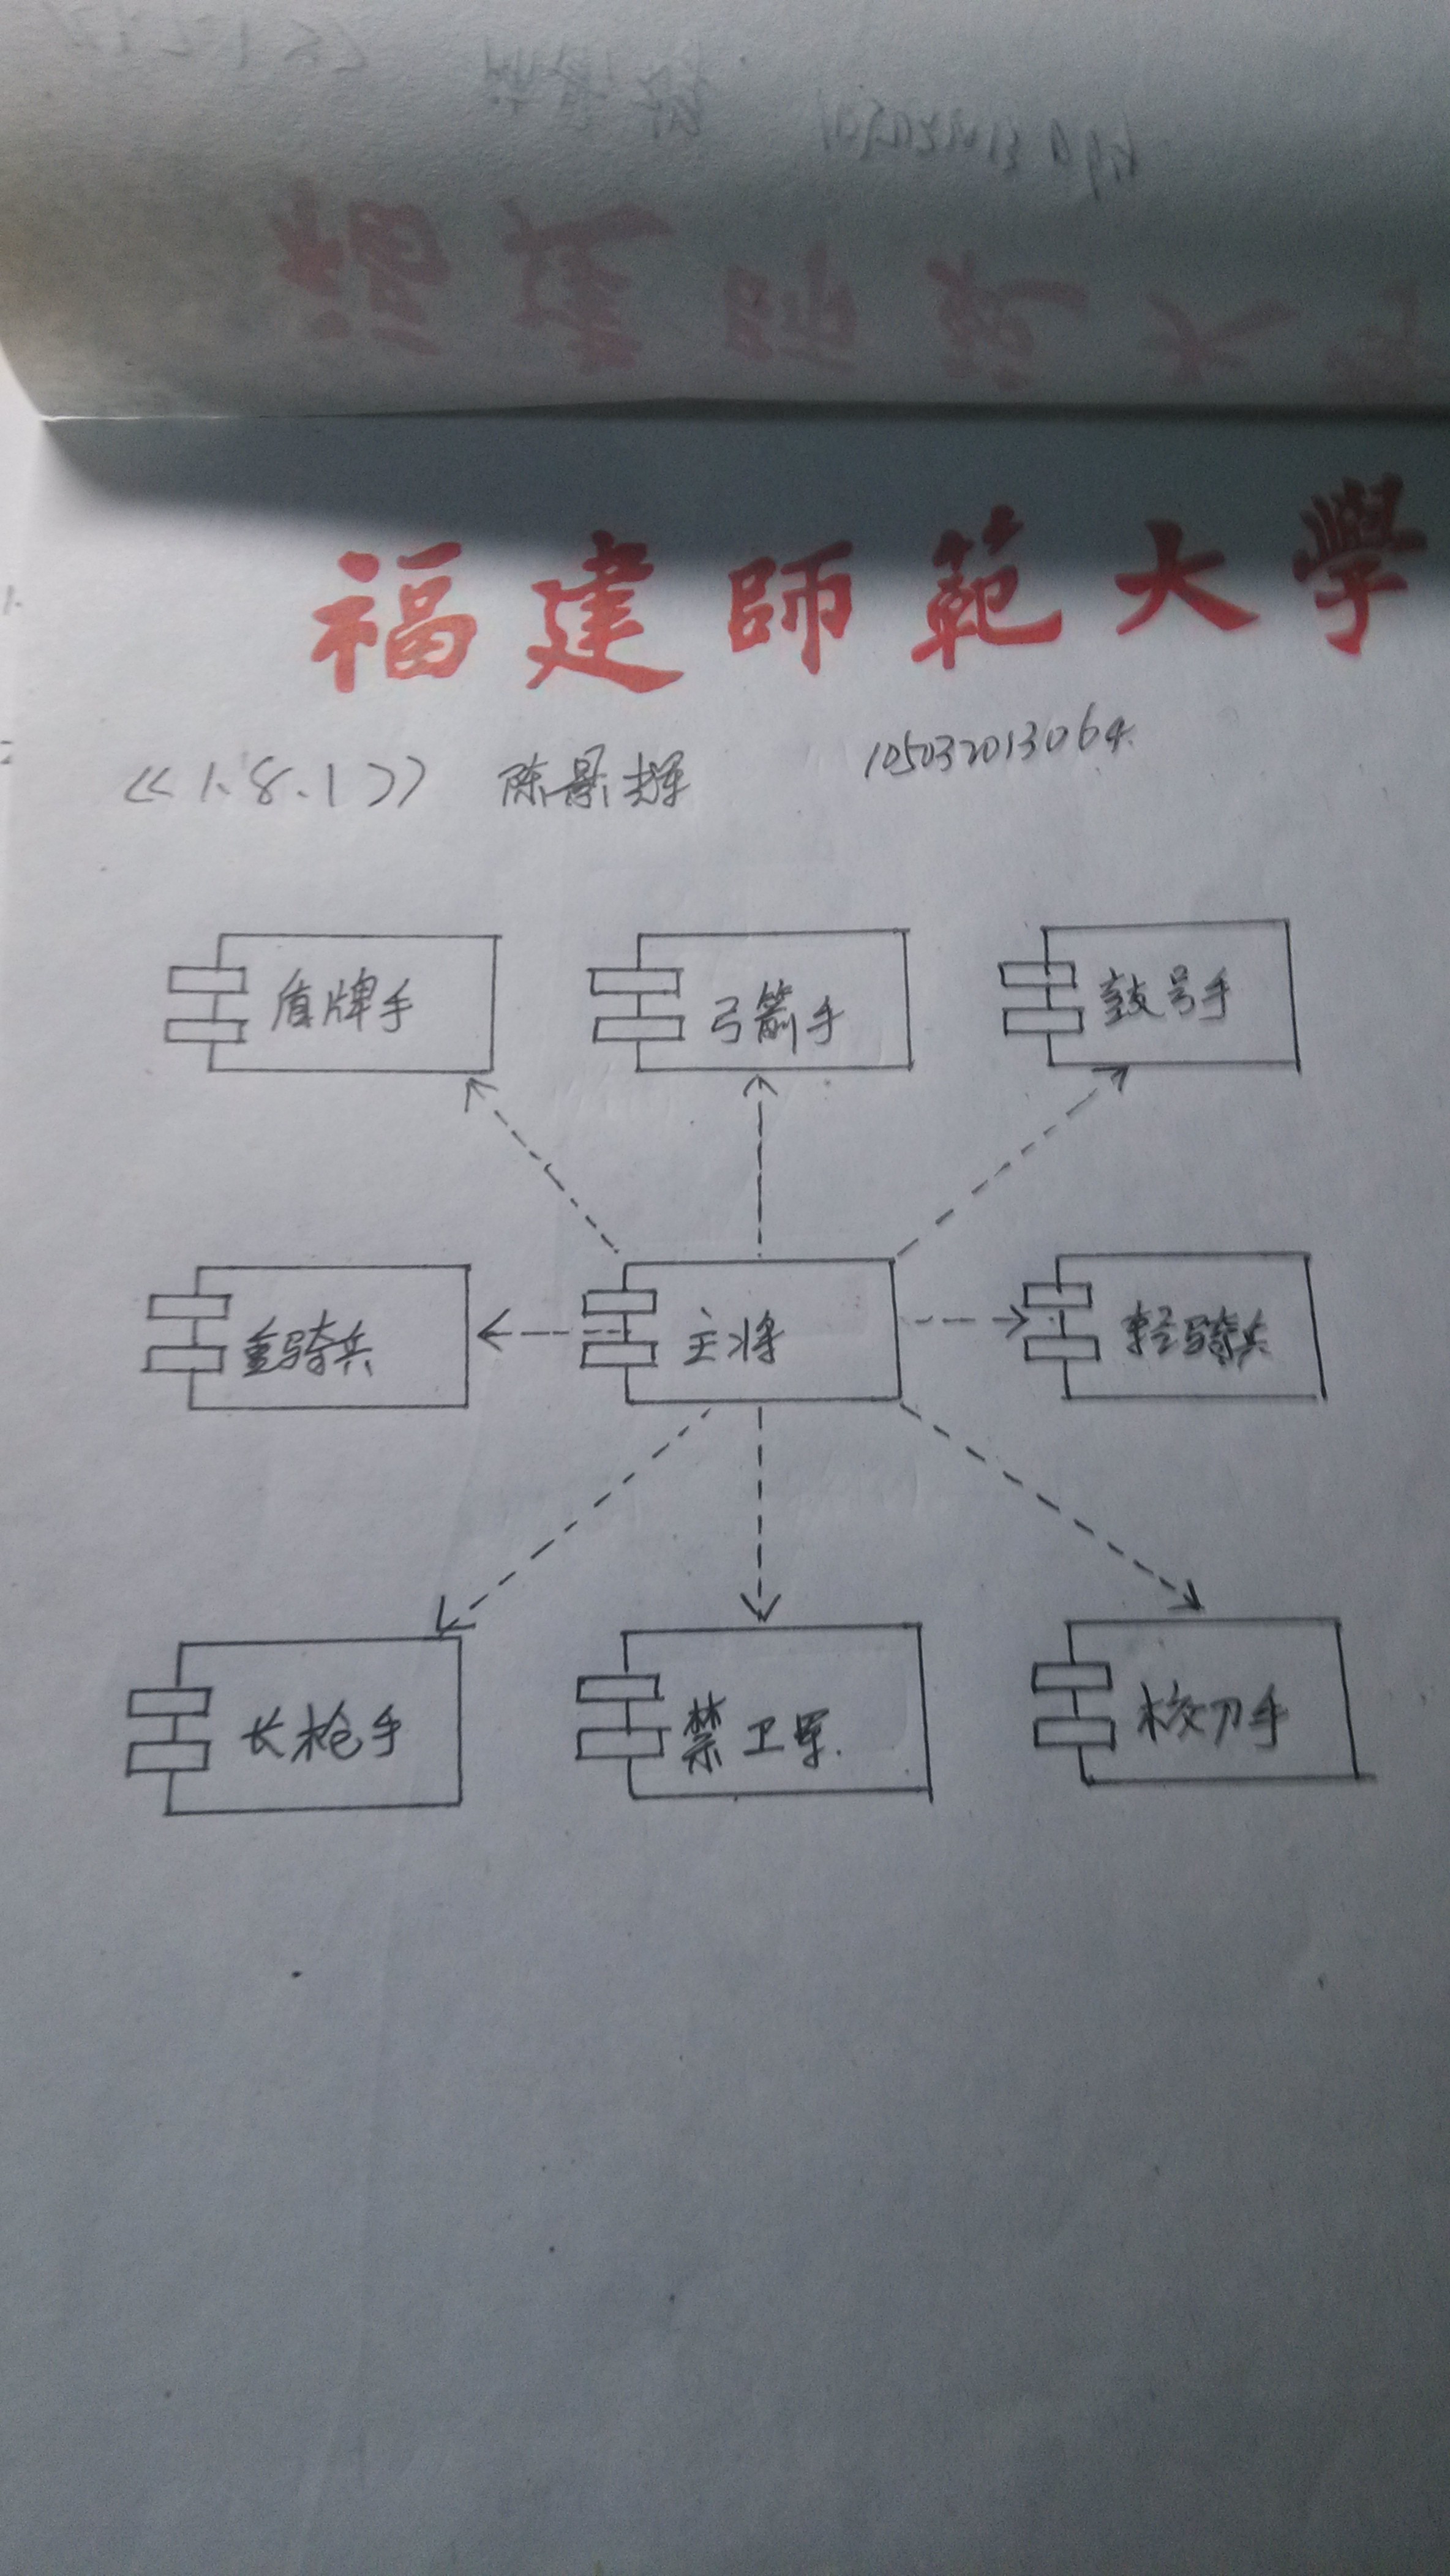 福建師範大學
<<1.8.1>> 陈景辉 105032013064
盾牌手 弓箭手 鼓号手
重骑兵 主将 轻骑兵
长枪手 禁卫军. 校刀手